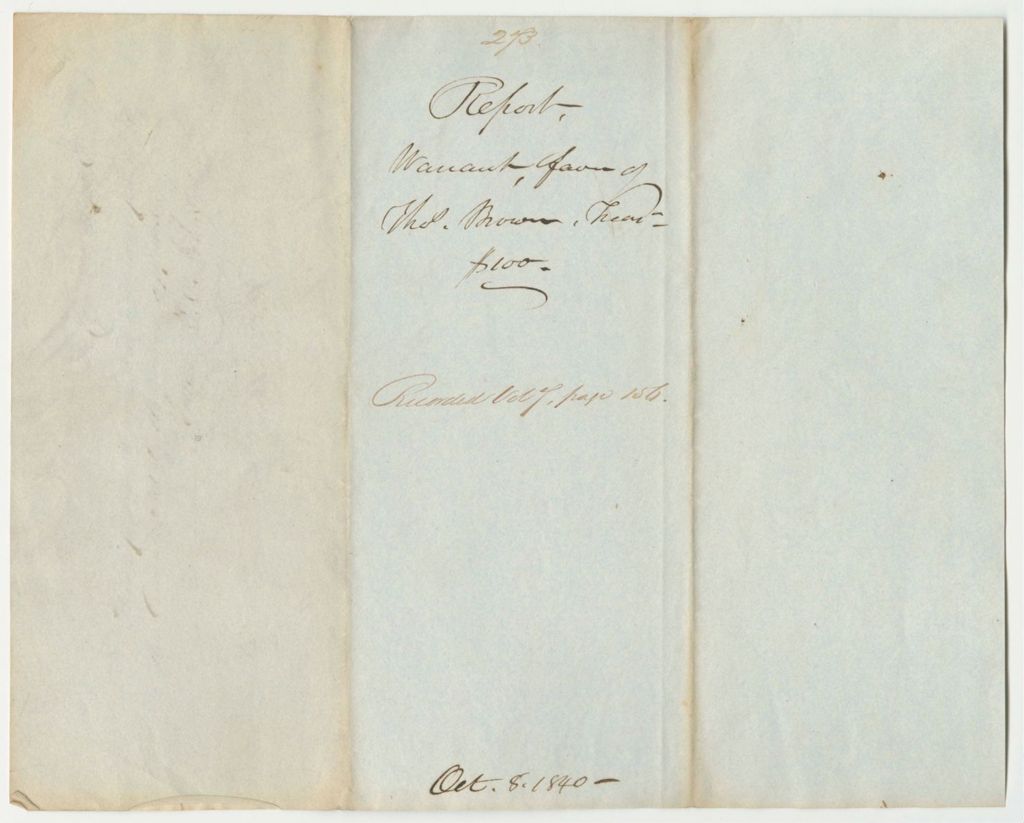 273.
Report,
Warrant, favor of
Thos. Brown, Trear-
$100-
Recorded Vol 7, page 156.
Oct. 8. 1840-